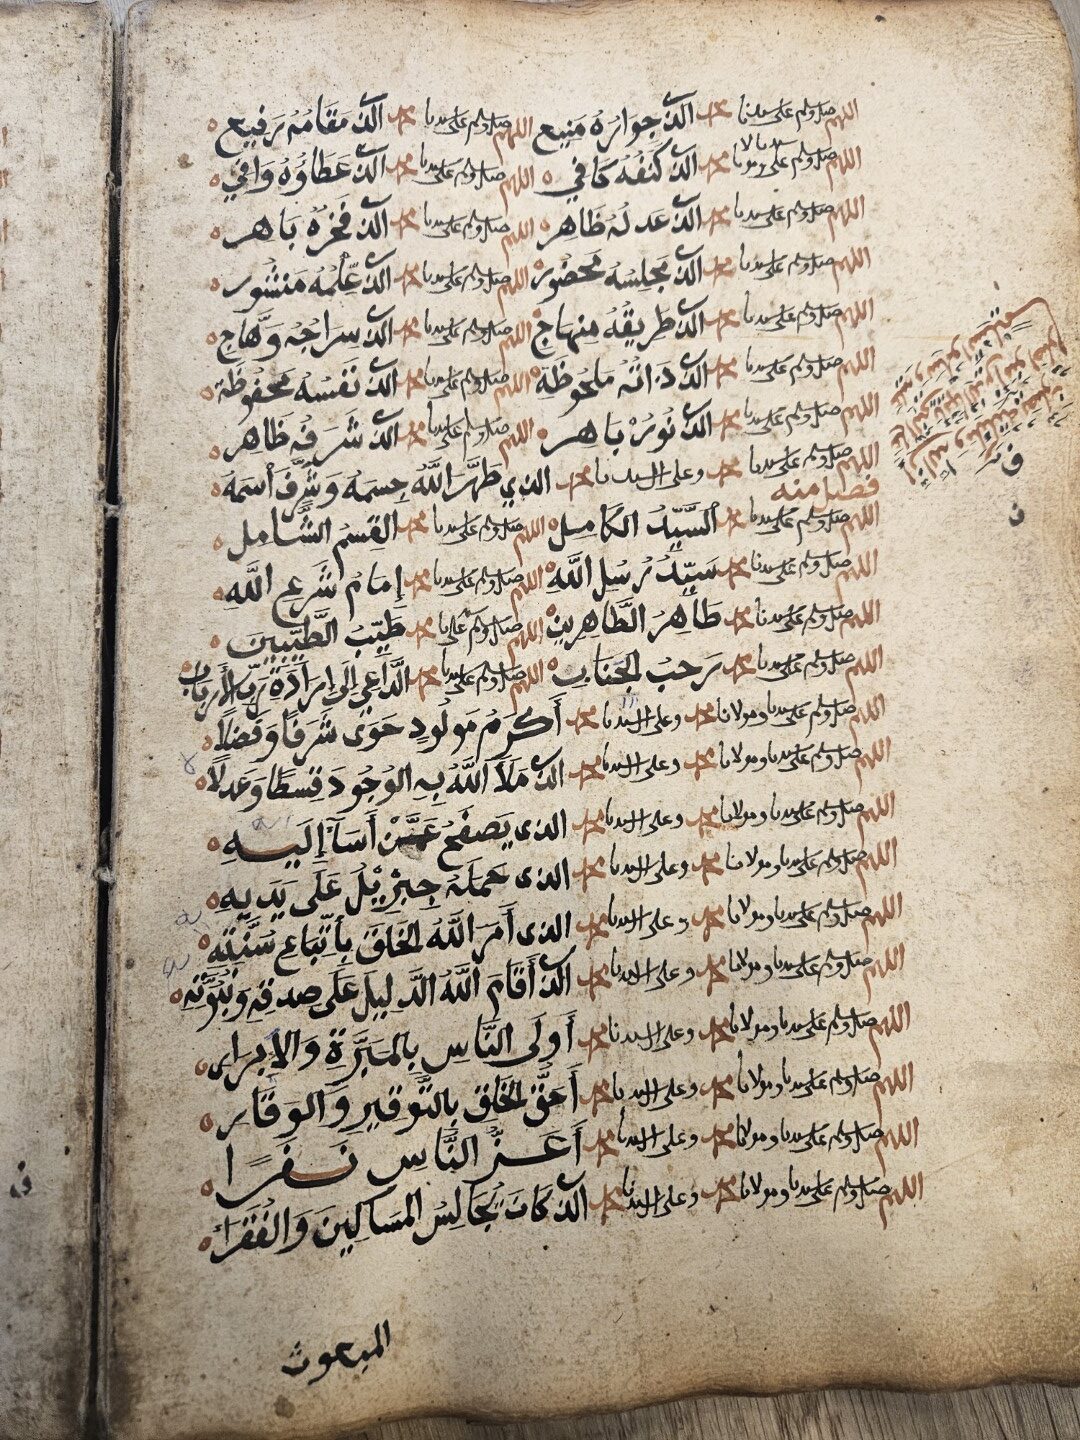 اللهم صل وسلم على سيدنا محمد الذي جواره منيع اللهم صل وسلم على سيدنا محمد الذي مقامه رفيع
اللهم صل وسلم على سيدنا ومولانا محمد الذي كنفه كافي اللهم صل وسلم على سيدنا محمد الذي عطاؤه وافي
اللهم صل وسلم على سيدنا محمد الذي عدله ظاهر اللهم صل وسلم على سيدنا محمد الذي فخره باهر
اللهم صل وسلم على سيدنا محمد الذي مجلسه محضور اللهم صل وسلم على سيدنا محمد الذي علمه منشور
اللهم صل وسلم على سيدنا محمد الذي طريقه منهاج اللهم صل وسلم على سيدنا محمد الذي سراجه وهاج
اللهم صل وسلم على سيدنا محمد الذي ذاته ملحوظة اللهم صل وسلم على سيدنا محمد الذي نفسه محفوظة
اللهم صل وسلم على سيدنا محمد الذي نوره باهر اللهم صل وسلم على سيدنا محمد الذي شرفه ظاهر
اللهم صل وسلم على سيدنا محمد وعلى ال سيدنا محمد الذي طهر الله جسمه وشرف اسمه
فصل منه
اللهم صل وسلم على سيدنا محمد السيد الكامل اللهم صل وسلم على سيدنا محمد القسم الشامل
اللهم صل وسلم على سيدنا محمد سيد رسل الله اللهم صل وسلم على سيدنا محمد إمام شرع الله
اللهم صل وسلم على سيدنا محمد طاهر الطاهرين اللهم صل وسلم على سيدنا محمد طيب الطيبين
اللهم صل وسلم على سيدنا محمد رحب الجناب اللهم صل وسلم على سيدنا محمد الداعي الى إرادة رب الأرباب
اللهم صل وسلم على سيدنا ومولانا محمد وعلى ال سيدنا محمد أكرم مولود حوى شرفا وفضلا
اللهم صل وسلم على سيدنا ومولانا محمد وعلى ال سيدنا محمد الذي ملأ الله به الوجود قسطا وعدلا
اللهم صل وسلم على سيدنا ومولانا محمد وعلى ال سيدنا محمد الذي يصفح عمن أسآء إليه
اللهم صل وسلم على سيدنا ومولانا محمد وعلى ال سيدنا محمد الذي حمله جبريل على يديه
اللهم صل وسلم على سيدنا ومولانا محمد وعلى ال سيدنا محمد الذي أمر الله الخلق بأتباع سنته
اللهم صل وسلم على سيدنا ومولانا محمد وعلى ال سيدنا محمد الذي أقام الله الدليل على صدقه ونبوته
اللهم صل وسلم على سيدنا ومولانا محمد وعلى ال سيدنا محمد أولى الناس بالمبرة والابرار
اللهم صل وسلم على سيدنا ومولانا محمد وعلى ال سيدنا محمد أحق الخلق بالتوقير والوقار
اللهم صل وسلم على سيدنا ومولانا محمد وعلى ال سيدنا محمد أعز الناس نفرا
اللهم صل وسلم على سيدنا ومولانا محمد وعلى ال سيدنا محمد الذي كان يجالس المساكين والفقرا
المبعوث